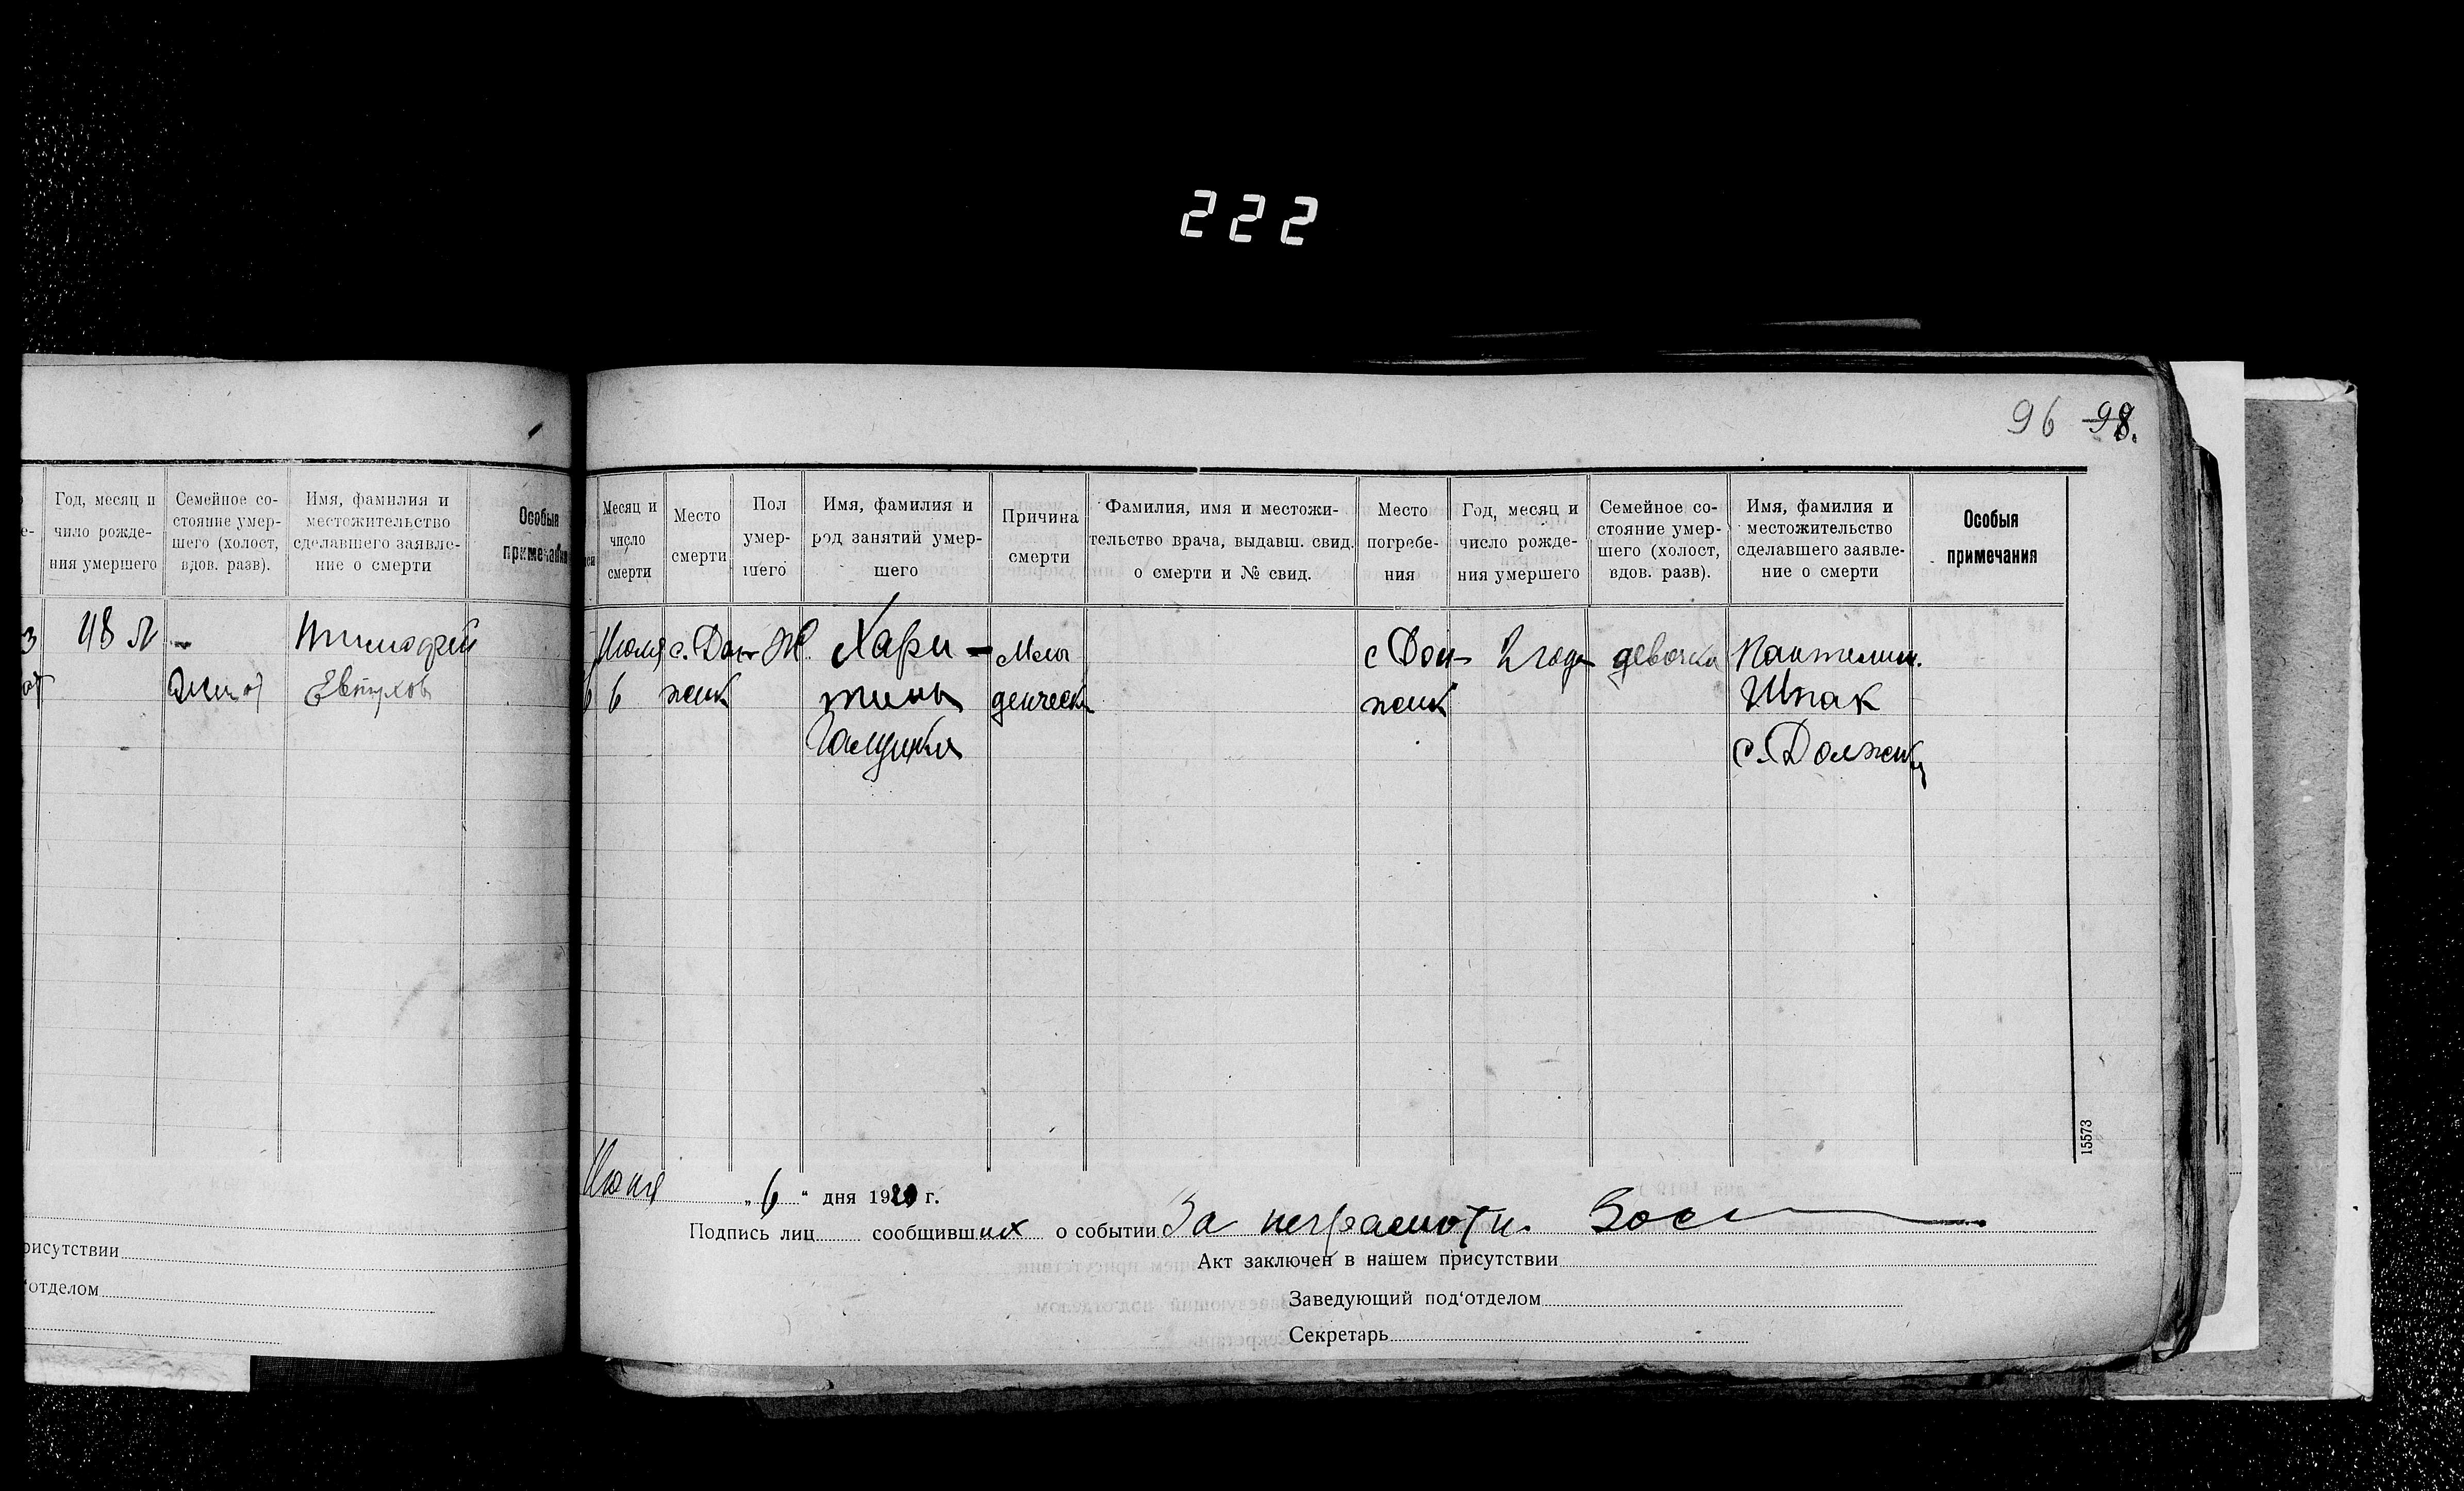 222
96 98.
Год, месяц и
чило рожде-
ния умершего
Семейное со-
стояние умер-
шего (холост,
вдов. разв).
Имя, фамилия и
местожительство
сделавшего заявле-
ние о смерти
Особыя
примечания
48 л
-
Тимофей
Евтухов
Месяц и
число
смерти
Место
смерти
Пол
умер-
шего
Имя, фамилия и
род занятий умер-
шего
Причина
смерти
Фамилия, имя и местожи-
тельство врача, выдавш. свид.
о смерти и № свид.
Место
погребе-
ния
Год, месяц и
число рожде-
ния умершего
Семейное со-
стояние умер-
шего (холост,
вдов. разв).
Имя, фамилия и
местожительство
сделавшего заявле-
ние о смерти
Особыя
примечания
6
с. Дол-
жик
Ж.
Хари-
тина
Мла
денческ
с Дол-
жик
2 года
девочка
Шпак
с. Должик
15573
„6“ дня 1920 г.
Подпись лиц сообщивших о событии За неграмотн.
Акт заключен в нашем присутствии
Заведующий под‘отделом
Секретарь
рисутствии
‘отделом